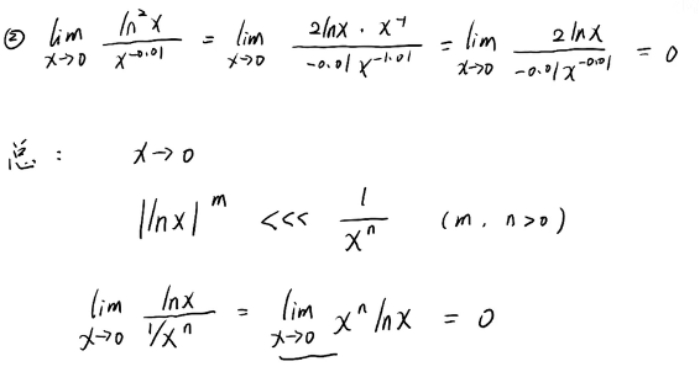 ② lim_{x→0} ln²x / x^{-0.01} = lim_{x→0} 2lnx · x^{-1} / -0.01x^{-1.01} = lim_{x→0} 2lnx / -0.01x^{-0.01} = 0
总: x→0
|lnx|^m <<< 1 / x^n (m, n>0)
lim_{x→0} lnx / 1/x^n = lim_{x→0} x^n lnx = 0